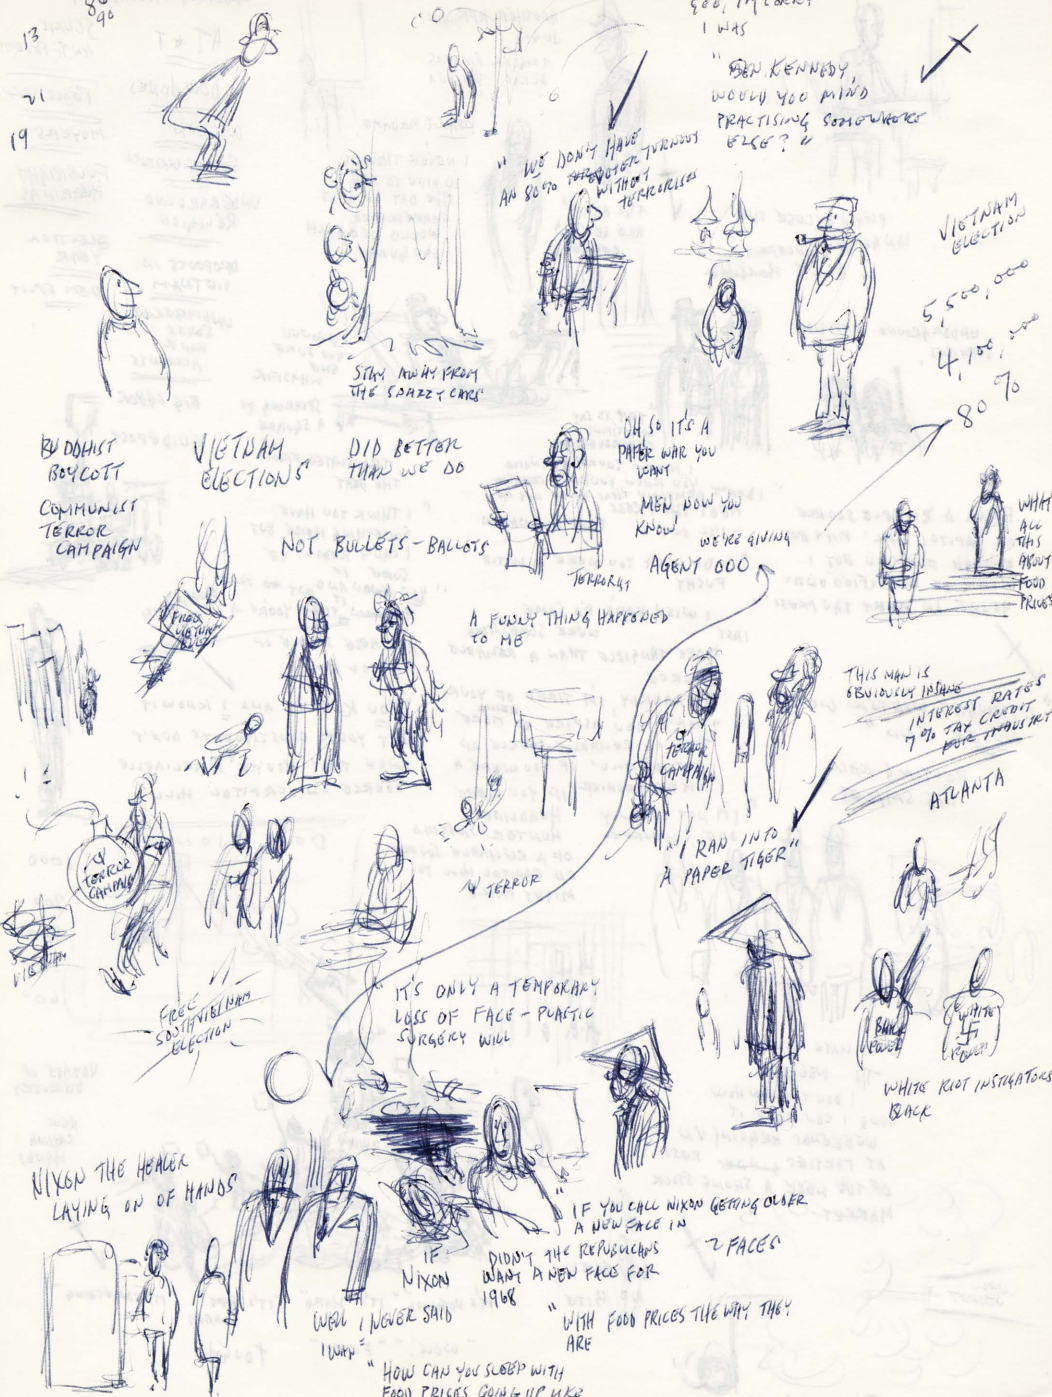 80
90
13
21
19
I WAS
"BEN KENNEDY,
WOULD YOU MIND
PRACTISING SOMEWHERE
ELSE?"
"WE DON'T HAVE
AN 80% TURNOUT
WITHOUT
TERRORISTS
VIETNAM
ELECTION
5,500,000
4,100,000
80%
STAY AWAY FROM
THE SPAZZY CARS
BUDDHIST
BOYCOTT
COMMUNIST
TERROR
CAMPAIGN
VIETNAM
ELECTIONS
DID BETTER
THAN WE DO
NOT BULLETS - BALLOTS
OH SO IT'S A
PAPER WAR YOU
WANT
MEN NOW YOU
KNOW
WE'RE GIVING
AGENT 000
TERRORIST
A FUNNY THING HAPPENED
TO ME
WHAT
ALL
THIS
ABOUT
FOOD
PRICES
FREE
VIETNAM
THIS MAN IS
OBVIOUSLY INSANE
INTEREST RATES
7% TAX CREDIT
FOR INDUSTRY
ATLANTA
TERROR
CAMPAIGN
"I RAN INTO
A PAPER TIGER"
V TERROR
CAMPAIGN
V TERROR
FREE
SOUTH VIETNAM
ELECTION
IT'S ONLY A TEMPORARY
LOSS OF FACE - PLASTIC
SURGERY WILL
BLACK
POWER
WHITE
POWER
WHITE RIOT INSTIGATORS
BLACK
NIXON THE HEALER
LAYING ON OF HANDS
"IF YOU CALL NIXON GETTING OLDER
A NEW FACE IN
2 FACES
IF
NIXON
DIDN'T THE REPUBLICANS
WANT A NEW FACE FOR
1968
WELL I NEVER SAID
I WAN
"WITH FOOD PRICES THE WAY THEY
ARE
"HOW CAN YOU SLEEP WITH
FOOD PRICES GOING UP LIKE